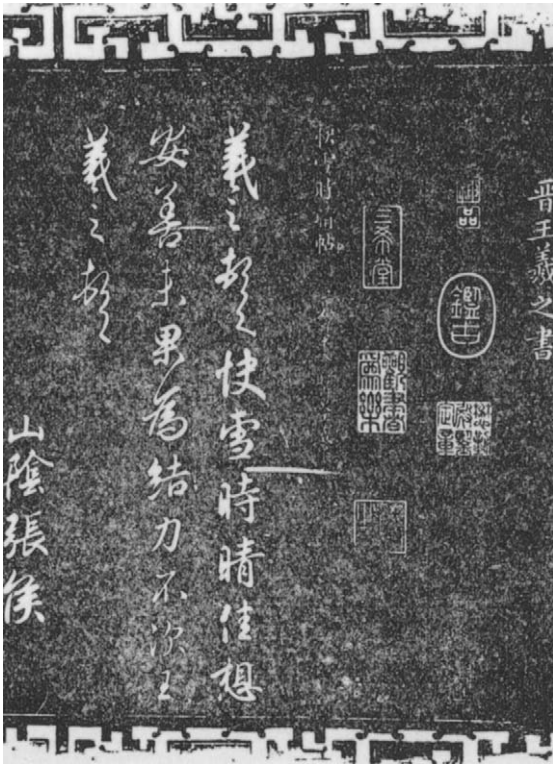 晋王羲之書
鑑古
三希堂
觀書為樂
快雪時晴帖
羲之頓首快雪時晴佳想
安善未果為結力不次王
羲之頓首
山陰張侯